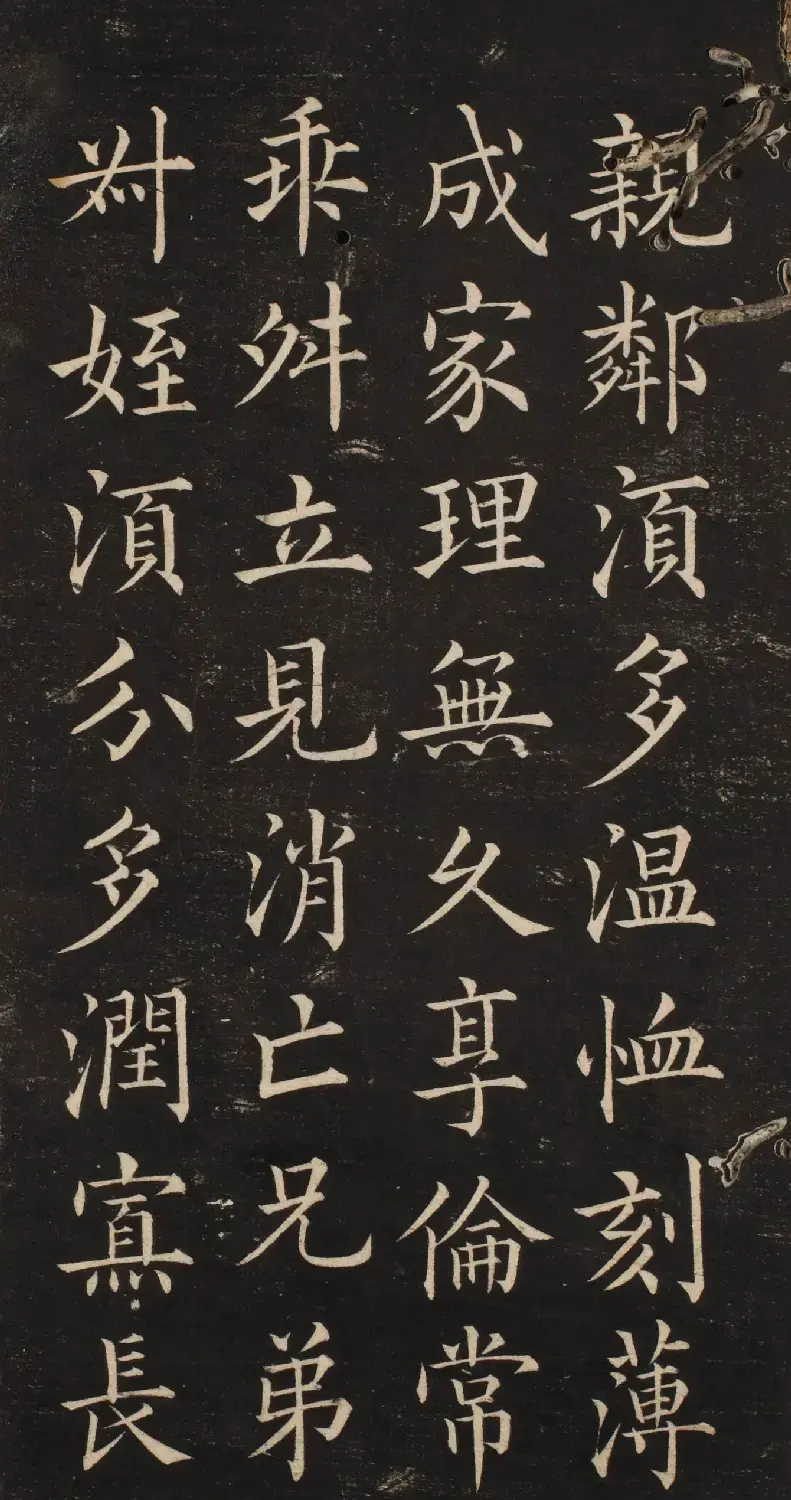 親鄰湏多温恤刻薄
成家理無久享倫常
乖舛立見消亡兄弟
叔姪湏分多潤寡長